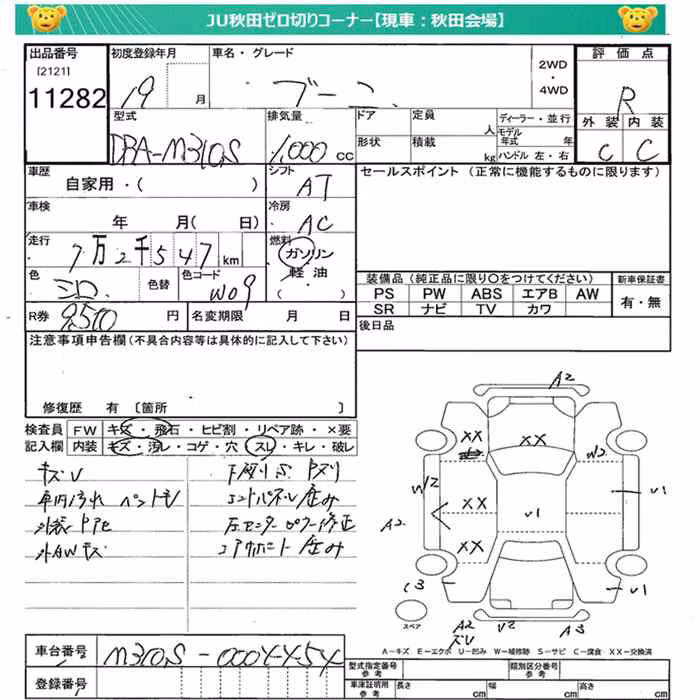 JU秋田ゼロ切りコーナー【現車：秋田会場】
出品番号
[2121]
11282
初度登録年月
19 月
車名・グレード
ブーン
2WD
・
4WD
評価点
R
外装 内装
C C
型式
DBA-M310S
排気量
1,000 CC
ドア
定員
人
形状
積載
kg
ディーラー・並行
モデル
年式 年
ハンドル 左・右
車歴
自家用・( )
シフト
AT
車検
年 月( 日)
冷房
AC
走行
7万2千547km
燃料
ガソリン
軽油
( ・ )
色
シロ
色替
色コード
W09
R券
9,500 円
名変期限 月 日
セールスポイント（正常に機能するものに限ります）
装備品（純正品に限り○をつけてください）
新車保証書
PS PW ABS エアB AW
SR ナビ TV カワ
有・無
後日品
注意事項申告欄（不具合内容等は具体的に記入して下さい）
修復歴 有〔箇所 〕
検査員
記入欄
FW キズ・飛石・ヒビ割・リペア跡・×要
内装 キズ・汚レ・コゲ・穴・スレ・キレ・破レ
キズU
車内汚れ
外AWキズ
コアサポート凹み
A2
XX
XX
W2
W2
XX
U1
U1
A2
XX
C3
U1
スペア
A2
U2
A3
A－キズ E－エクボ U－凹み W－補修跡 S－サビ C－腐食 XX－交換済
車台番号
M310S-0004454
登録番号
型式指定番号
参考
類別区分番号
参考
車庫証明用
参考
長さ cm
幅 cm
高さ cm